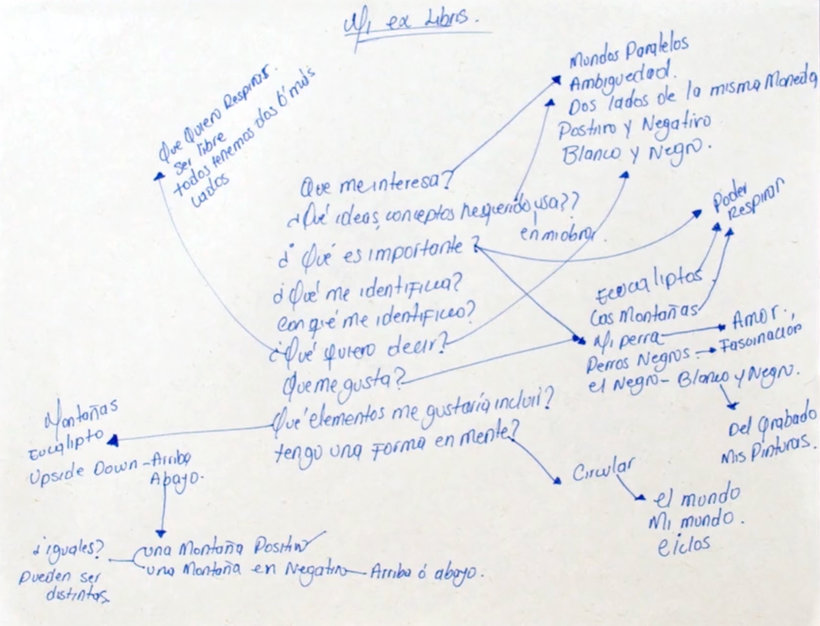 Mi ex Libris.
Que Quiero Respirar.
ser libre
todos tenemos dos ó más
lados
Mundos Paralelos
Ambiguedad.
Dos lados de la misma Moneda
Positivo y Negativo
Blanco y Negro.
Que me interesa?
¿Qué ideas, conceptos he querido usa??
en mi obra,
¿Qué es importante?
¿Qué me identifica?
con qué me identifico?
¿Qué quiero decir?
Que me gusta?
Qué elementos me gustaría incluir?
tengo una Forma en mente?
Poder
Respirar
Las Montañas
Mi perra
Amor.,
Perros Negros
Fascinación
el Negro - Blanco y Negro.
Del Grabado
Mis Pinturas.
Circular
el mundo
Mi mundo.
ciclos
Montañas
Eucalipto
Upside Down - Arriba
Abajo.
¿iguales?
Pueden ser
distintas.
una Montaña Positiv
una Montaña en Negativo - Arriba ó abajo.